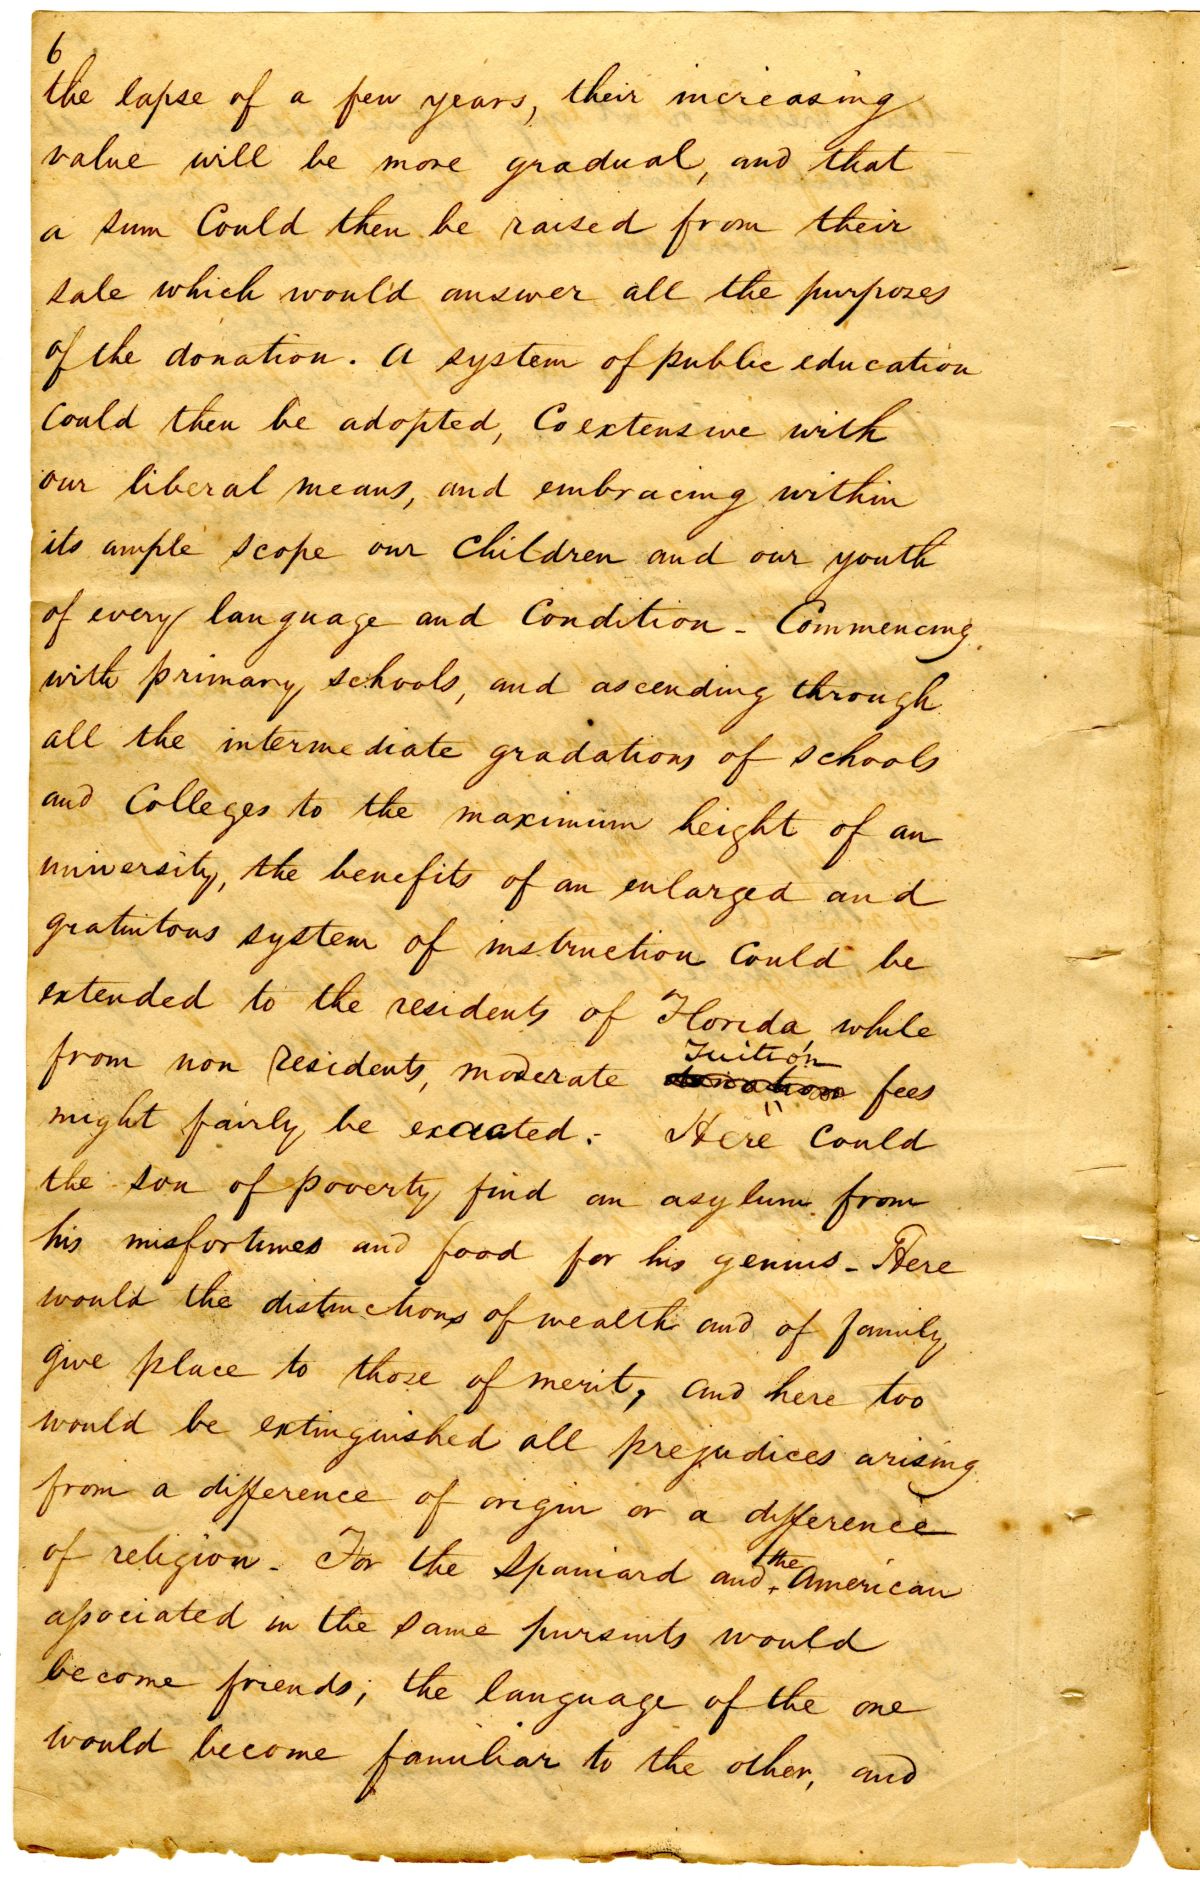 6
the lapse of a few years, their increasing
value will be more gradual, and that
a sum Could then be raised from their
sale which would answer all the purposes
of the donation. A system of public education
Could then be adopted, Coextensive with
our liberal means, and embracing within
its ample scope our Children and our youth
of every language and Condition - Commencing
with primary schools, and ascending through
all the intermediate gradations of schools
and Colleges to the maximum height of an
university, the benefits of an enlarged and
gratuitous system of instruction Could be
extended to the residents of Florida while
Tuition
from non Residents, moderate donation fees
might fairly be exacted. Here Could
the son of poverty find an asylum from
his misfortunes and food for his genius - Here
would the distinctions of wealth and of family
give place to those of merit, and here too
would be extinguished all prejudices arising
from a difference of origin or a difference
of religion - For the Spaniard and the American
associated in the same pursuits would
become friends; the language of the one
would become familiar to the other, and